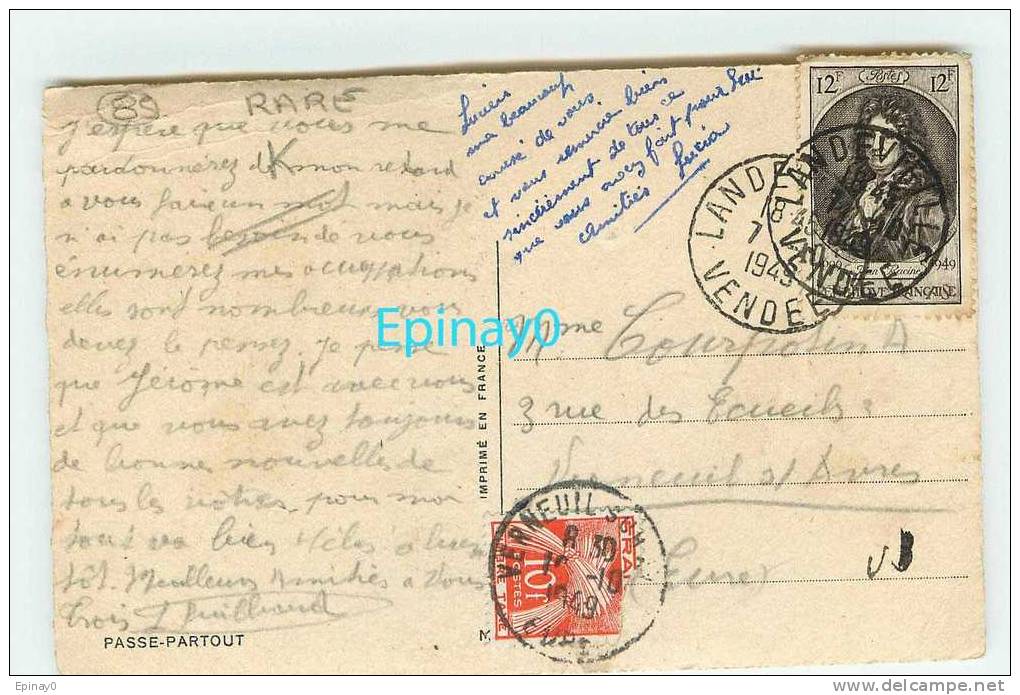 89 RARE
J'espère que vous me
pardonnerez de mon retard
a vous faire un mot mais je
n'ai pas besoin de vous
énumérez mes occupations
elles sont nombreuses vous
devez le pensez. Je pense
que Jérôme est avec vous
et que vous avez toujours
de bonnes nouvelles de
tous les votres pour moi
tout va bien
tôt. Meilleurs Amitiés a Vous
Trois
PASSE-PARTOUT
Lucien
ma beaucoup
de vous
et vous remercie bien
sincèrement de tous ce
que vous avez fait pour
Amitiés
IMPRIMÉ EN FRANCE
12F Postes 12F
Jean Racine 1949
FRANÇAISE
LANDEVIEILLE
7
1949
VENDEE
Mme
3 rue des
Verneuil s/ Avre
(Eure)
VERNEUIL S
8 30
1949
EURE
10F
POSTES
Epinay0
Epinay0
http://www.delcampe.net